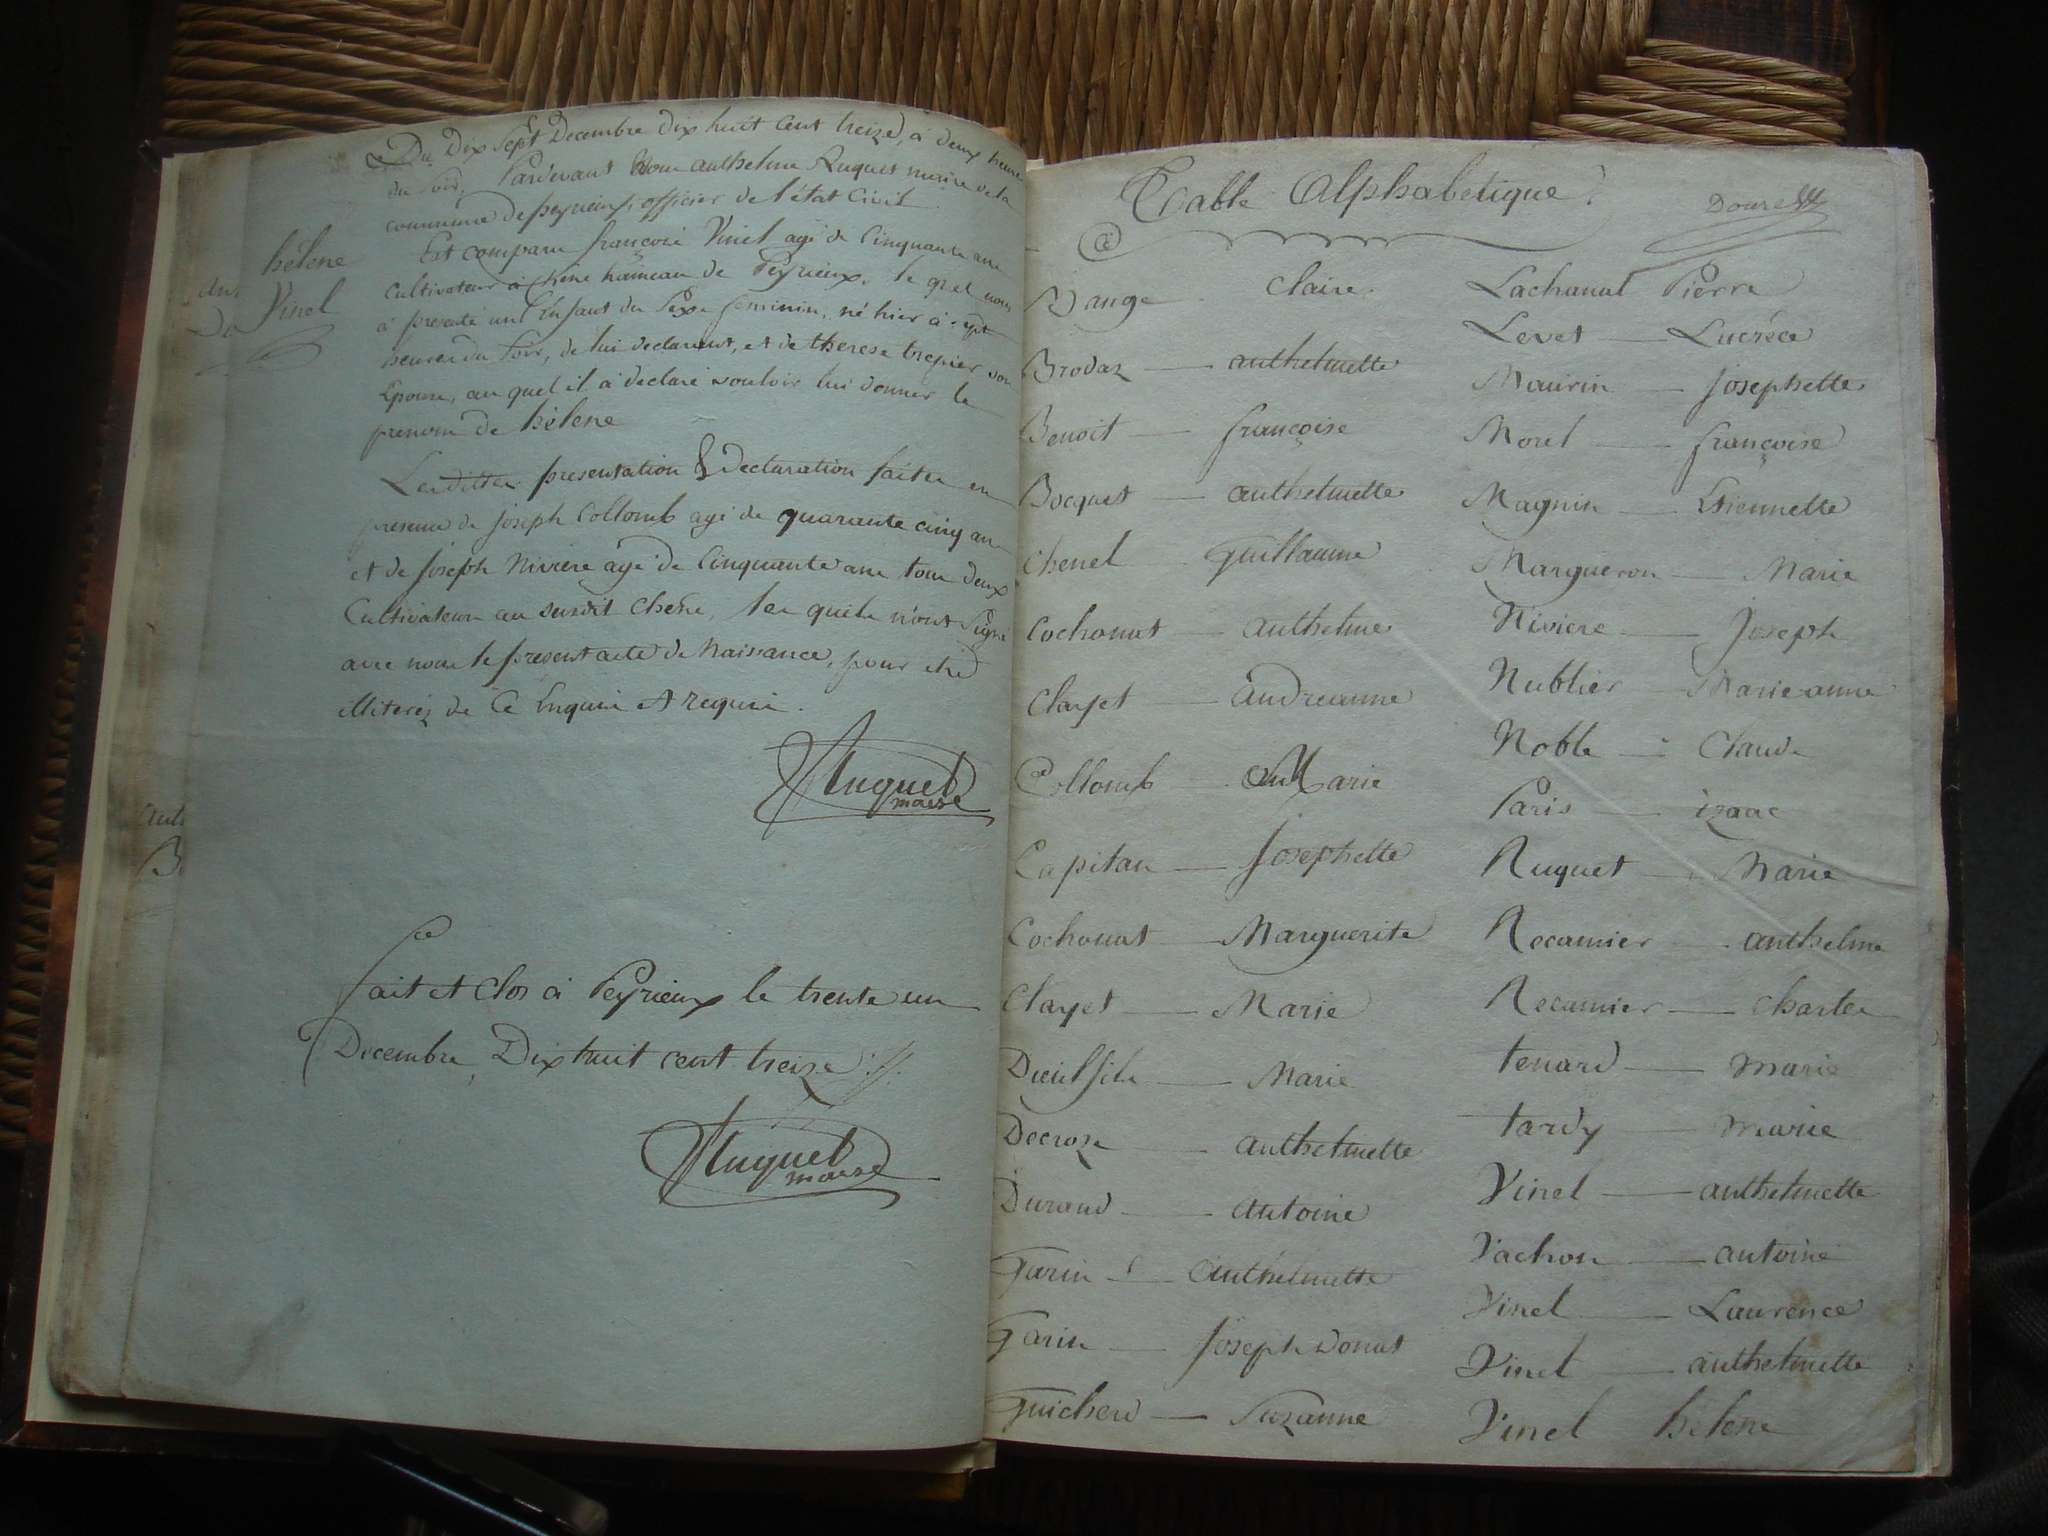 Du Dix Sept Decembre dix huit cent treize, à deux heure
du soir, Pardevant Nous anthelme Ruquet maire de la
commune de peyrieux, officier de l'état Civil
hélène
Vinel
Est comparu françois Vinel agé de Cinquante ans
Cultivateur à Chêne hameau de Peyrieux, le quel nous
à presenté un Enfant du Sexe feminin, né hier à sept
heures du soir, de lui declarant, et de therese trepier son
Epouse, au quel il à declaré vouloir lui donner le
prenom de hélene
Lesdittes presentation & declaration faites en
presence de joseph Collomb agé de quarante cinq ans
et de joseph Nivière âgé de Cinquante ans tous deux
Cultivateurs au susdit Chêne, les quels n'ont signé
avec nous le present acte de Naissance, pour etre
illiterés de Ce Enquis et requis.
Ruquet
maire
fait et Clos à Peyrieux le trente un
Decembre, Dix huit cent treize
Ruquet
maire
Table Alphabetique
Bange Claire
Brodaz — anthelmette
Benoit — françoise
Bocquet — anthelmette
Chenel guillaume
Cochonat — anthelme
Clayet — andreanne
Collomb Marie
Capitan — Josephette
Cochonat — Marguerite
Clayet — Marie
Dieulfils — Marie
Decroze — anthelmette
Durand — antoine
Garin — anthelmette
Garin — Joseph donat
Guicherd — Suzanne
Lachanal Pierre
Levet — Lucrèce
Maurin — josephette
Morel — françoise
Magnin — Etiennette
Margueron — Marie
Nivière — Joseph
Nublier — Marie anne
Noble — Claude
Paris — izaac
Ruquet — Marie
Recamier — anthelme
Recamier — charles
tenard — marie
tardy — marie
Vinel — anthelmette
Vachon — antoine
Vinel — Laurence
Vinel — anthelmette
Vinel hélene